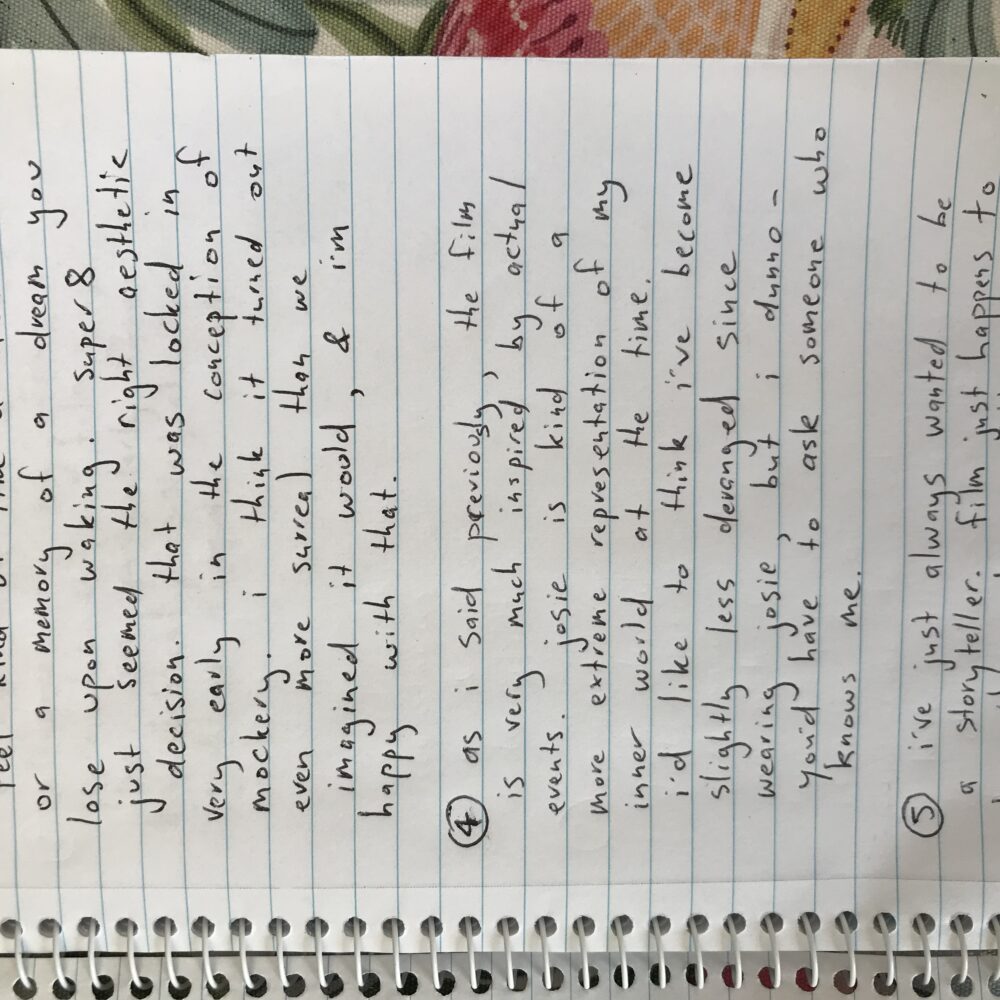 feel kind of like a
or a memory of a dream you
lose upon waking. super 8
just seemed the right aesthetic
decision. that was locked in
very early in the conception of
mockery. i think it turned out
even more surreal than we
imagined it would, & i'm
happy with that.
④ as i said previously, the film
is very much inspired by actual
events. josie is kind of a
more extreme representation of my
inner world at the time.
i'd like to think i've become
slightly less deranged since
wearing josie, but i dunno -
you'd have to ask someone who
knows me.
⑤ i've just always wanted to be
a storyteller. film just happens to